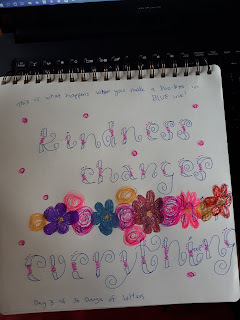 This is what happens when you make a boo boo in
BLUE ink!
kindness
changes
everything
Day 3 of 30 Days of letters